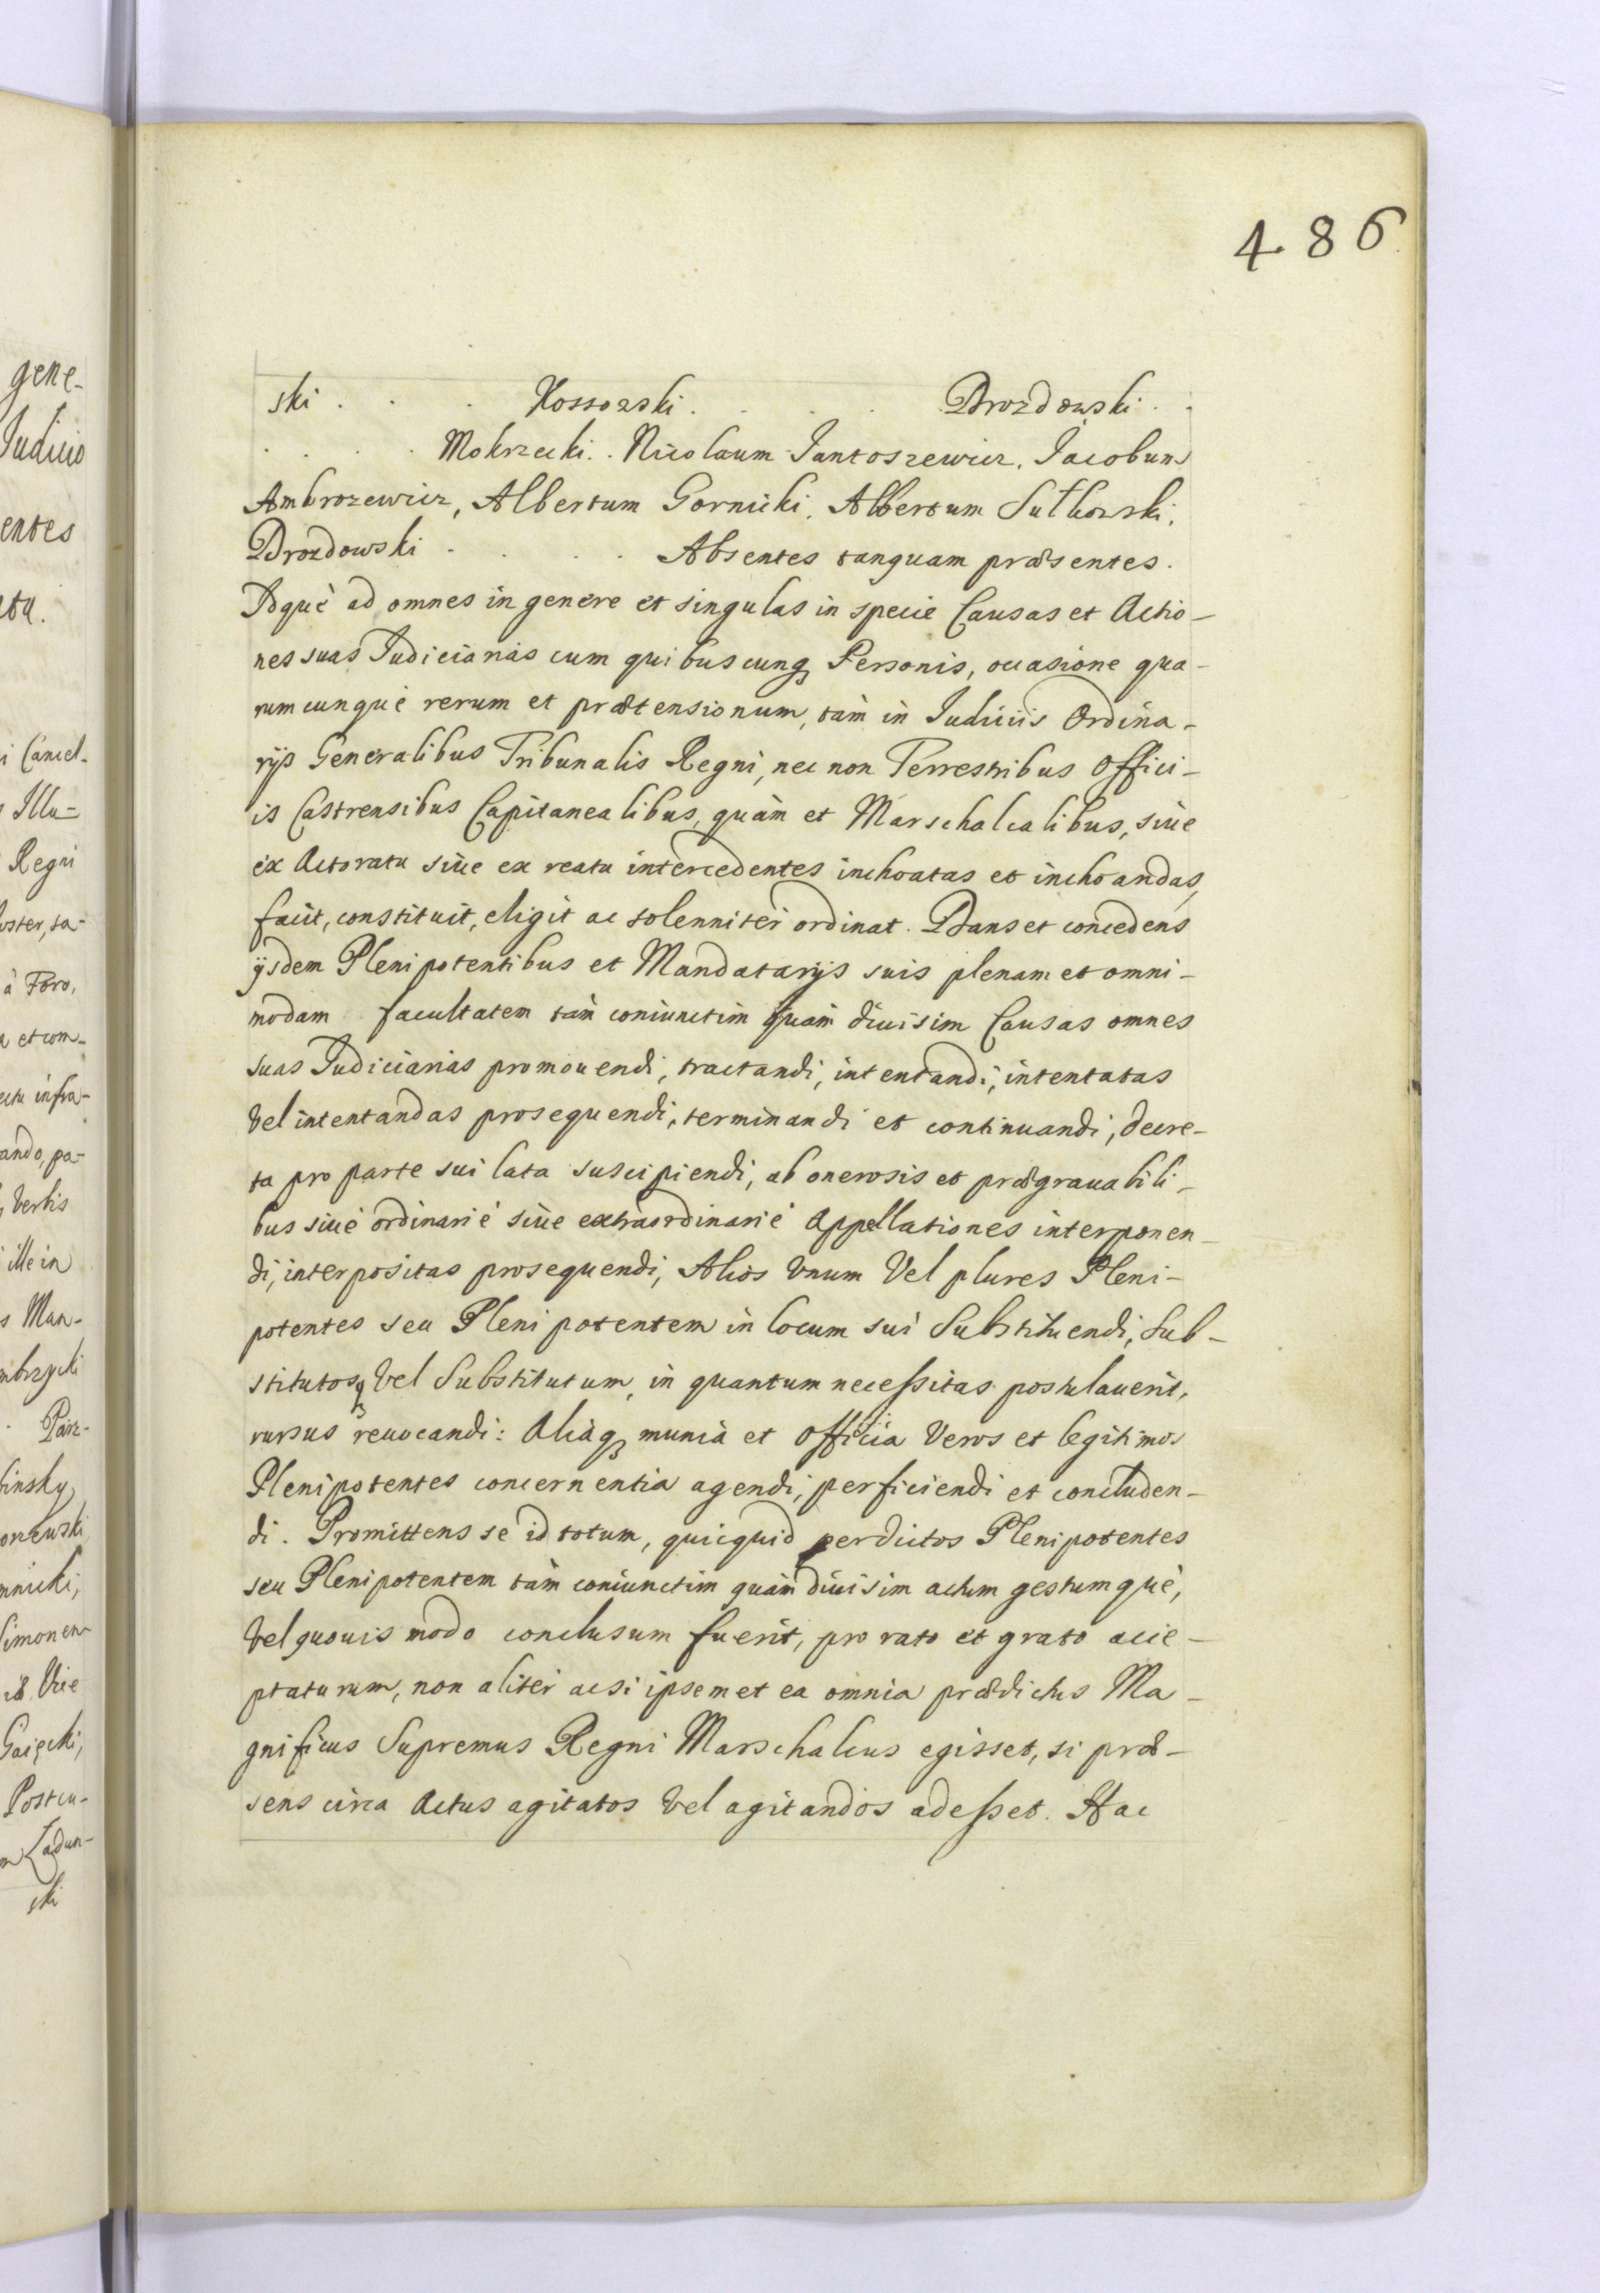 486
ski . . . Kossowski . . . . Drozdowski . .
. . . . Mokrzecki . . Nicolaum Jantoszewicz, Jacobum
Ambrozewicz, Albertum Gornicki, Albertum Sułkowski,
Drozdowski . . . . . Absentes tanquam præsentes.
Idquè ad omnes in genere et singulas in specie Causas et Actio-
nes suas Judiciarias cum quibuscunq3 Personis, occasione qua-
rumcunquè rerum et prætensionum, tàm in Judiciis Ordina-
rijs Generalibus Tribunalis Regni, nec non Terrestribus Offici-
is Castrensibus Capitanealibus, quàm et Marschalcalibus, siue
ex Actoratu siue ex reatu intercedentes inchoatas et inchoandas,
facit, constituit, eligit ac solenniter ordinat. Dans et concedens
ijsdem Plenipotentibus et Mandatarijs suis plenam et omni-
modam facultatem tàm coniunctim quàm diuisim Causas omnes
suas Judiciarias promouendi, tractandi, intentandi, intentatas
vel intentandas prosequendi, terminandi et continuandi, decre-
ta pro parte sui lata suscipiendi, ab onerosis et prægrauabili-
bus siuè ordinariè siue extraordinariè Appellationes interponen-
di, interpositas prosequendi, Alios vnum Vel plures Pleni-
potentes seu Plenipotentem in locum sui Substituendi, Sub-
stitutosq3 Vel Substitutum, in quantum necessitas postulauerit,
rursus reuocandi: Aliaq3 munia et Officia Veros et legitimos
Plenipotentes concernentia agendi, perficiendi et concluden-
di. Promittens se id totum, quicquid per dictos Plenipotentes
seu Plenipotentem tàm coniunctim quàm diuisim actum gestumquè,
Vel quouis modo conclusum fuerit, pro rato et grato acce-
ptaturum, non aliter acsi ipsemet ea omnia prædictus Ma-
gnificus Supremus Regni Marschalcus egisset, si præ-
sens circa Actus agitatos Vel agitandos adesset. Hac
gene-
Judicio
entes
i Cancel-
Illu=
Regni
à Foro,
et com-
infra-
ando, pa-
Verbis
ille in
Man-
Parz-
linsky
Simonem
Vice
Gaięcki,
Postcu-
Ladun-
ski